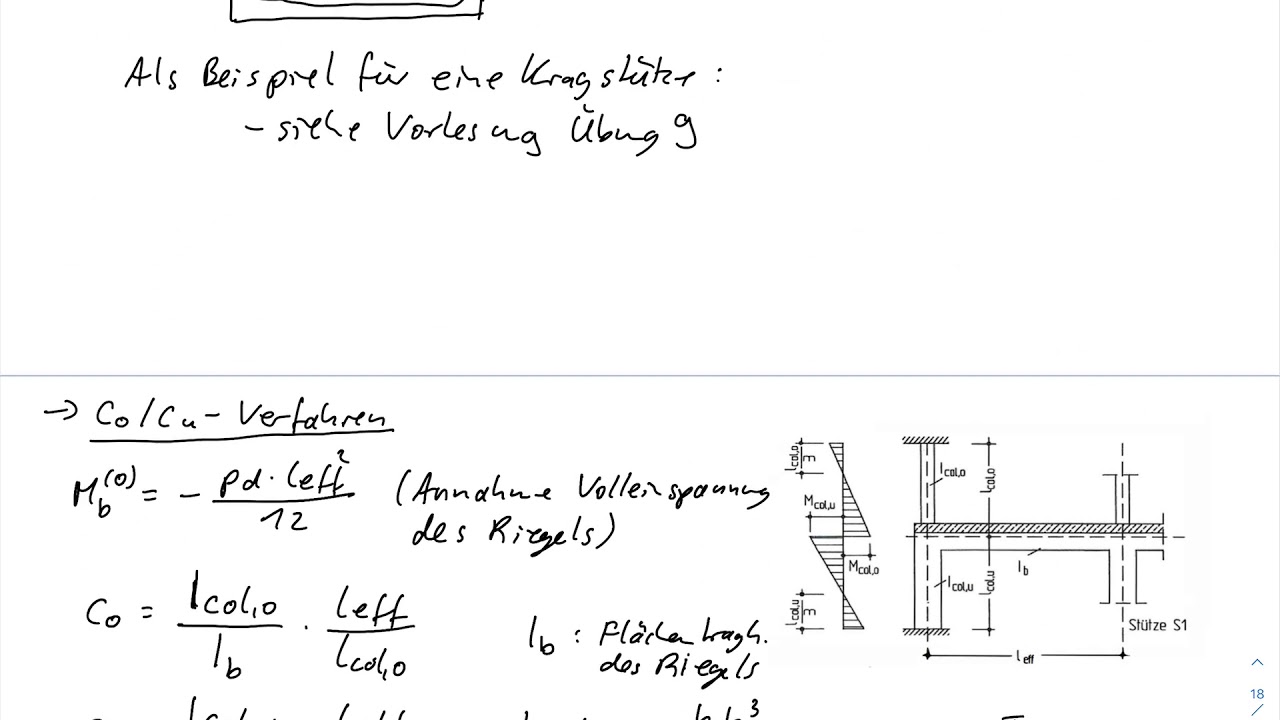 Als Beispiel für eine Kragstütze:
- siehe Vorlesung Übung 9
→ Co/Cu - Verfahren
M_b^(0) = - pd · leff² / 12 (Annahme Volleinspannung
des Riegels)
Co = Icol,o / Ib · leff / lcol,o
Ib : Flächentragh.
des Riegels
lcol,o
m
Mcol,u
Mcol,o
lcol,u
m
Icol,o
lcol,o
Ib
Icol,u
lcol,u
Stütze S1
leff
18